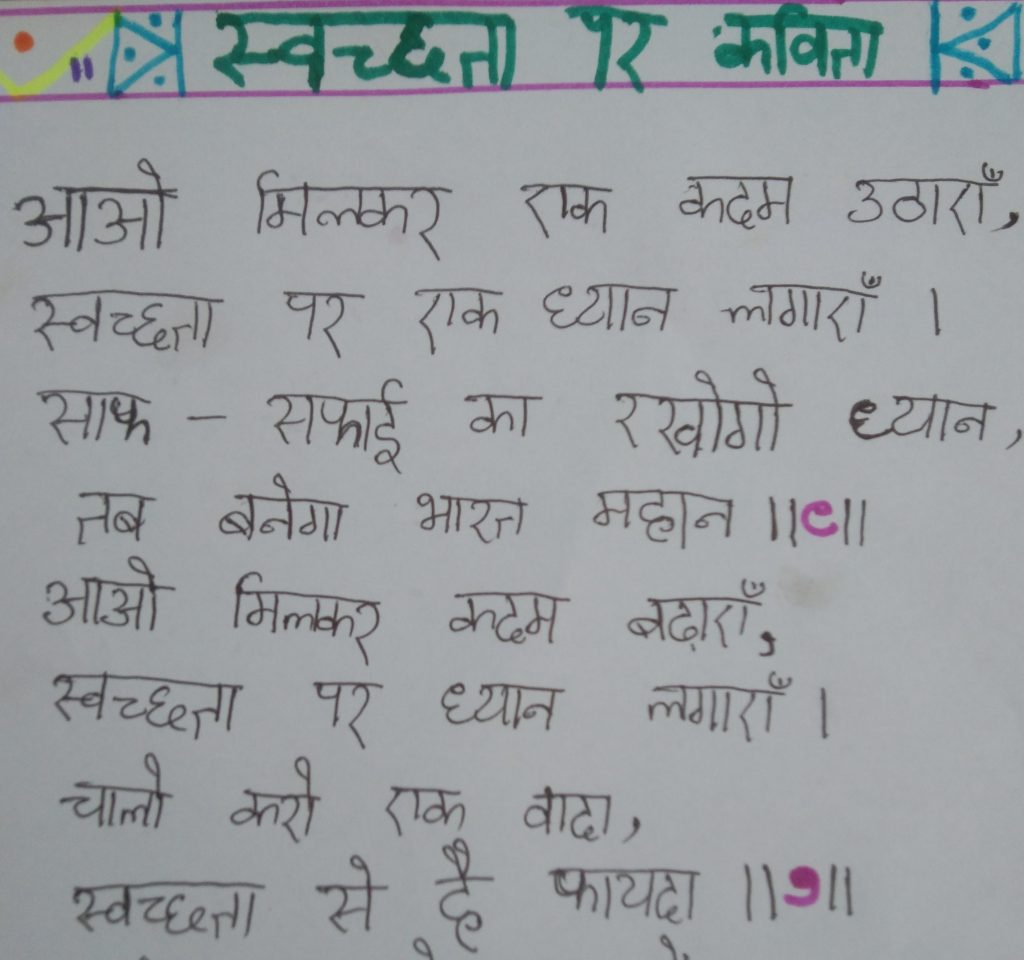 स्वच्छता पर कविता
आओ मिलकर एक कदम उठाएँ,
स्वच्छता पर एक ध्यान लगाएँ ।
साफ - सफाई का रखोगो ध्यान,
तब बनेगा भारत महान ||१||
आओ मिलकर कदम बढ़ाएँ,
स्वच्छता पर ध्यान लगाएँ ।
चालो करो एक वादा,
स्वच्छता से है फायदा ||२||